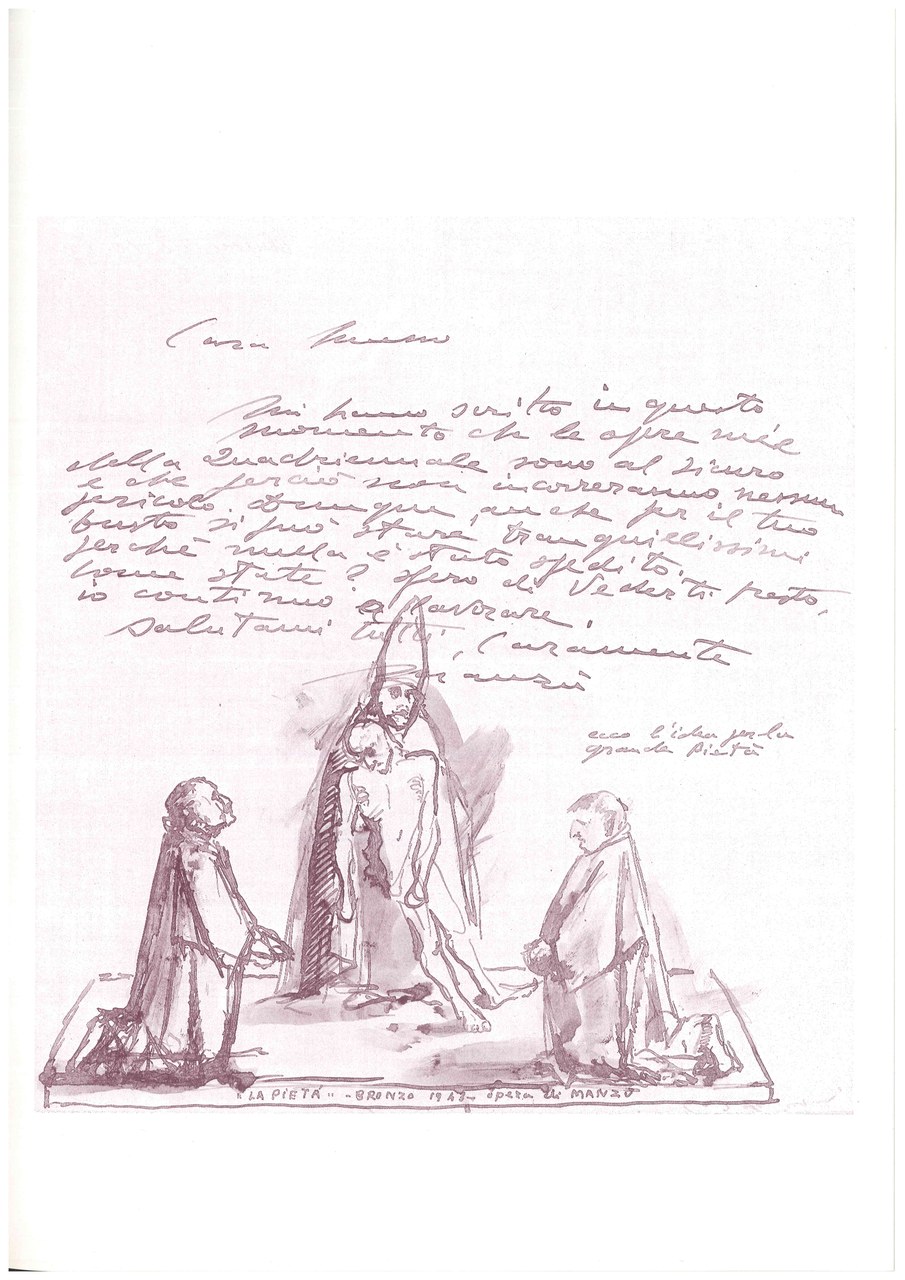 Caro
Mi hanno scritto in questo
momento che le opere mie
della Quadriennale sono al sicuro
e che perciò non incorreranno nessun
pericolo. Dunque, anche per il tuo
busto si può stare tranquillissimi
perché nulla è stato spedito.
Come state? spero di vederti presto,
io continuo a lavorare,
salutami tutti, Caramente
Manzù
ecco l'idea per la
grande Pietà
"LA PIETÀ" - BRONZO opera di MANZÙ